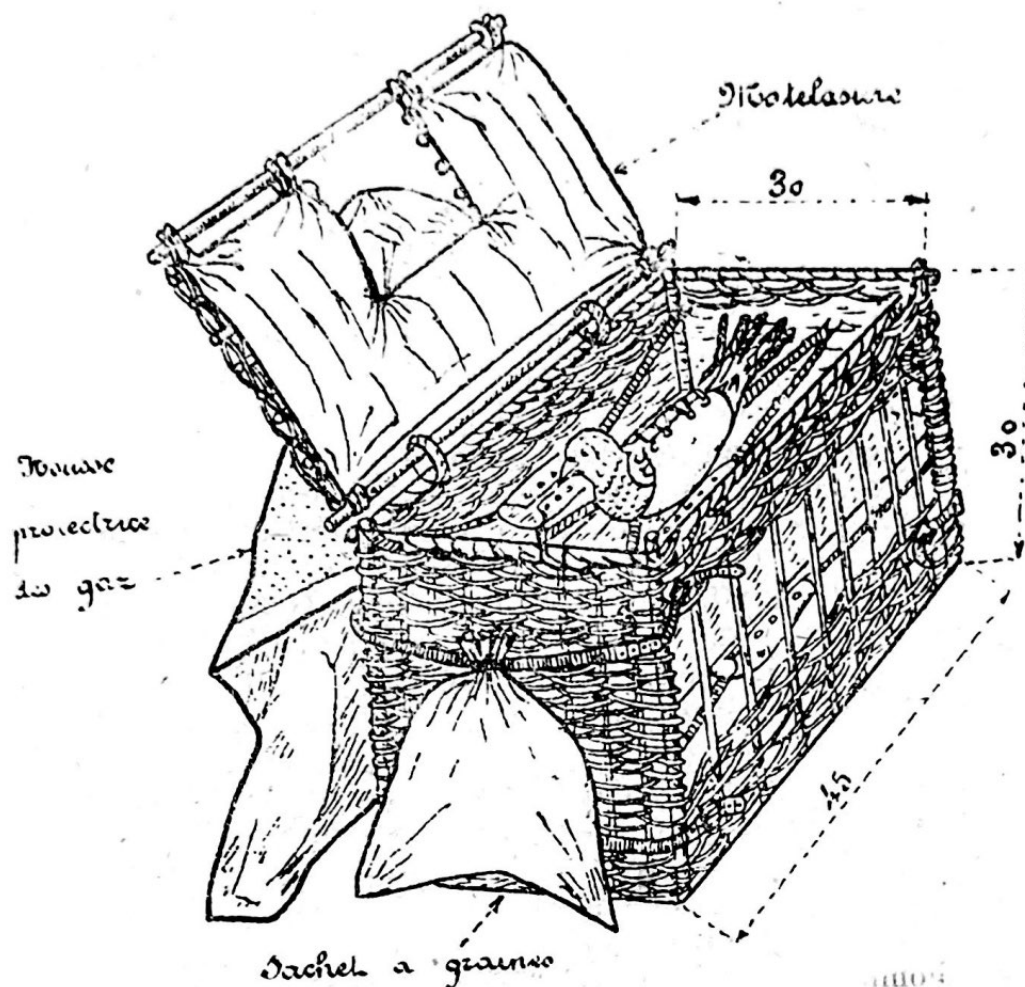 Matelasure
30
30
Housse
protectrice
des gaz
45
Sachet a graines